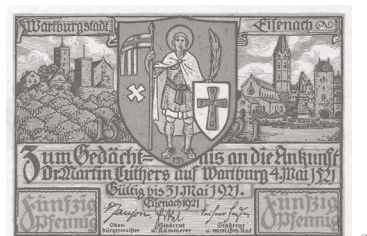 Wartburgstadt Eisenach
Zum Gedächt= nis an die Ankunft
Dr. Martin Luthers auf Wartburg 4. Mai 1521
Gültig bis 31. Mai 1921.
Eisenach 1921
Fünfzig Pfennig
Fünfzig Pfennig
Ober= bürgermeister
Stadtrat u. Kämmerer
Stadtrat